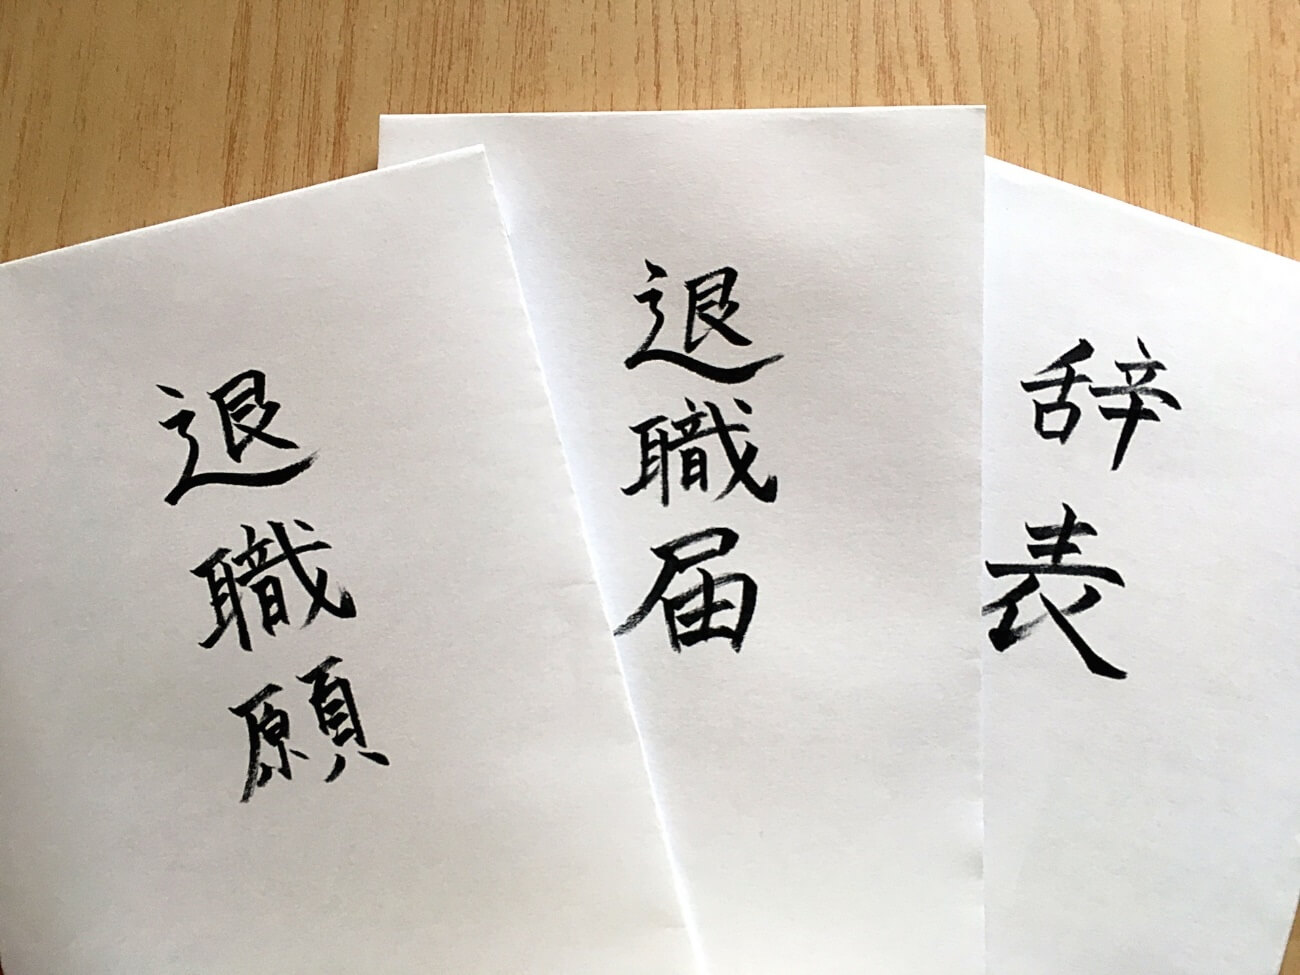 退職願
退職届
辞表